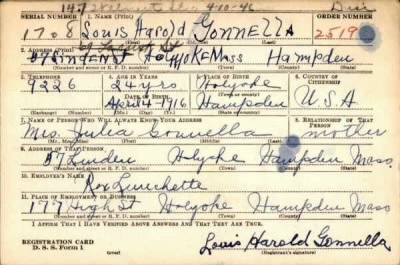 SERIAL NUMBER 1. NAME (Print) ORDER NUMBER
1708 Louis Harold Gonnella 2519
2. ADDRESS (Print)
37 Linden St Holyoke Mass Hampden
(Number and street or R. F. D. number) (Town) (County) (State)
3. TELEPHONE 4. AGE IN YEARS 5. PLACE OF BIRTH 6. COUNTRY OF CITIZENSHIP
9226 24 yrs Holyoke
DATE OF BIRTH (Town or county)
April 4 1916 Hampden U.S.A
(Mo.) (Day) (Yr.) (State or country)
7. NAME OF PERSON WHO WILL ALWAYS KNOW YOUR ADDRESS 8. RELATIONSHIP OF THAT PERSON
Mrs. Julia Gonnella mother
9. ADDRESS OF THAT PERSON
37 Linden Holyoke Hampden Mass.
(Number and street or R. F. D. number) (Town) (County) (State)
10. EMPLOYER'S NAME
Roy
11. PLACE OF EMPLOYMENT OR BUSINESS
177 High St Holyoke Hampden Mass
(Number and street or R. F. D. number) (Town) (County) (State)
I AFFIRM THAT I HAVE VERIFIED ABOVE ANSWERS AND THAT THEY ARE TRUE.
REGISTRATION CARD
D. S. S. Form 1 (over) Louis Harold Gonnella
(Registrant's signature)